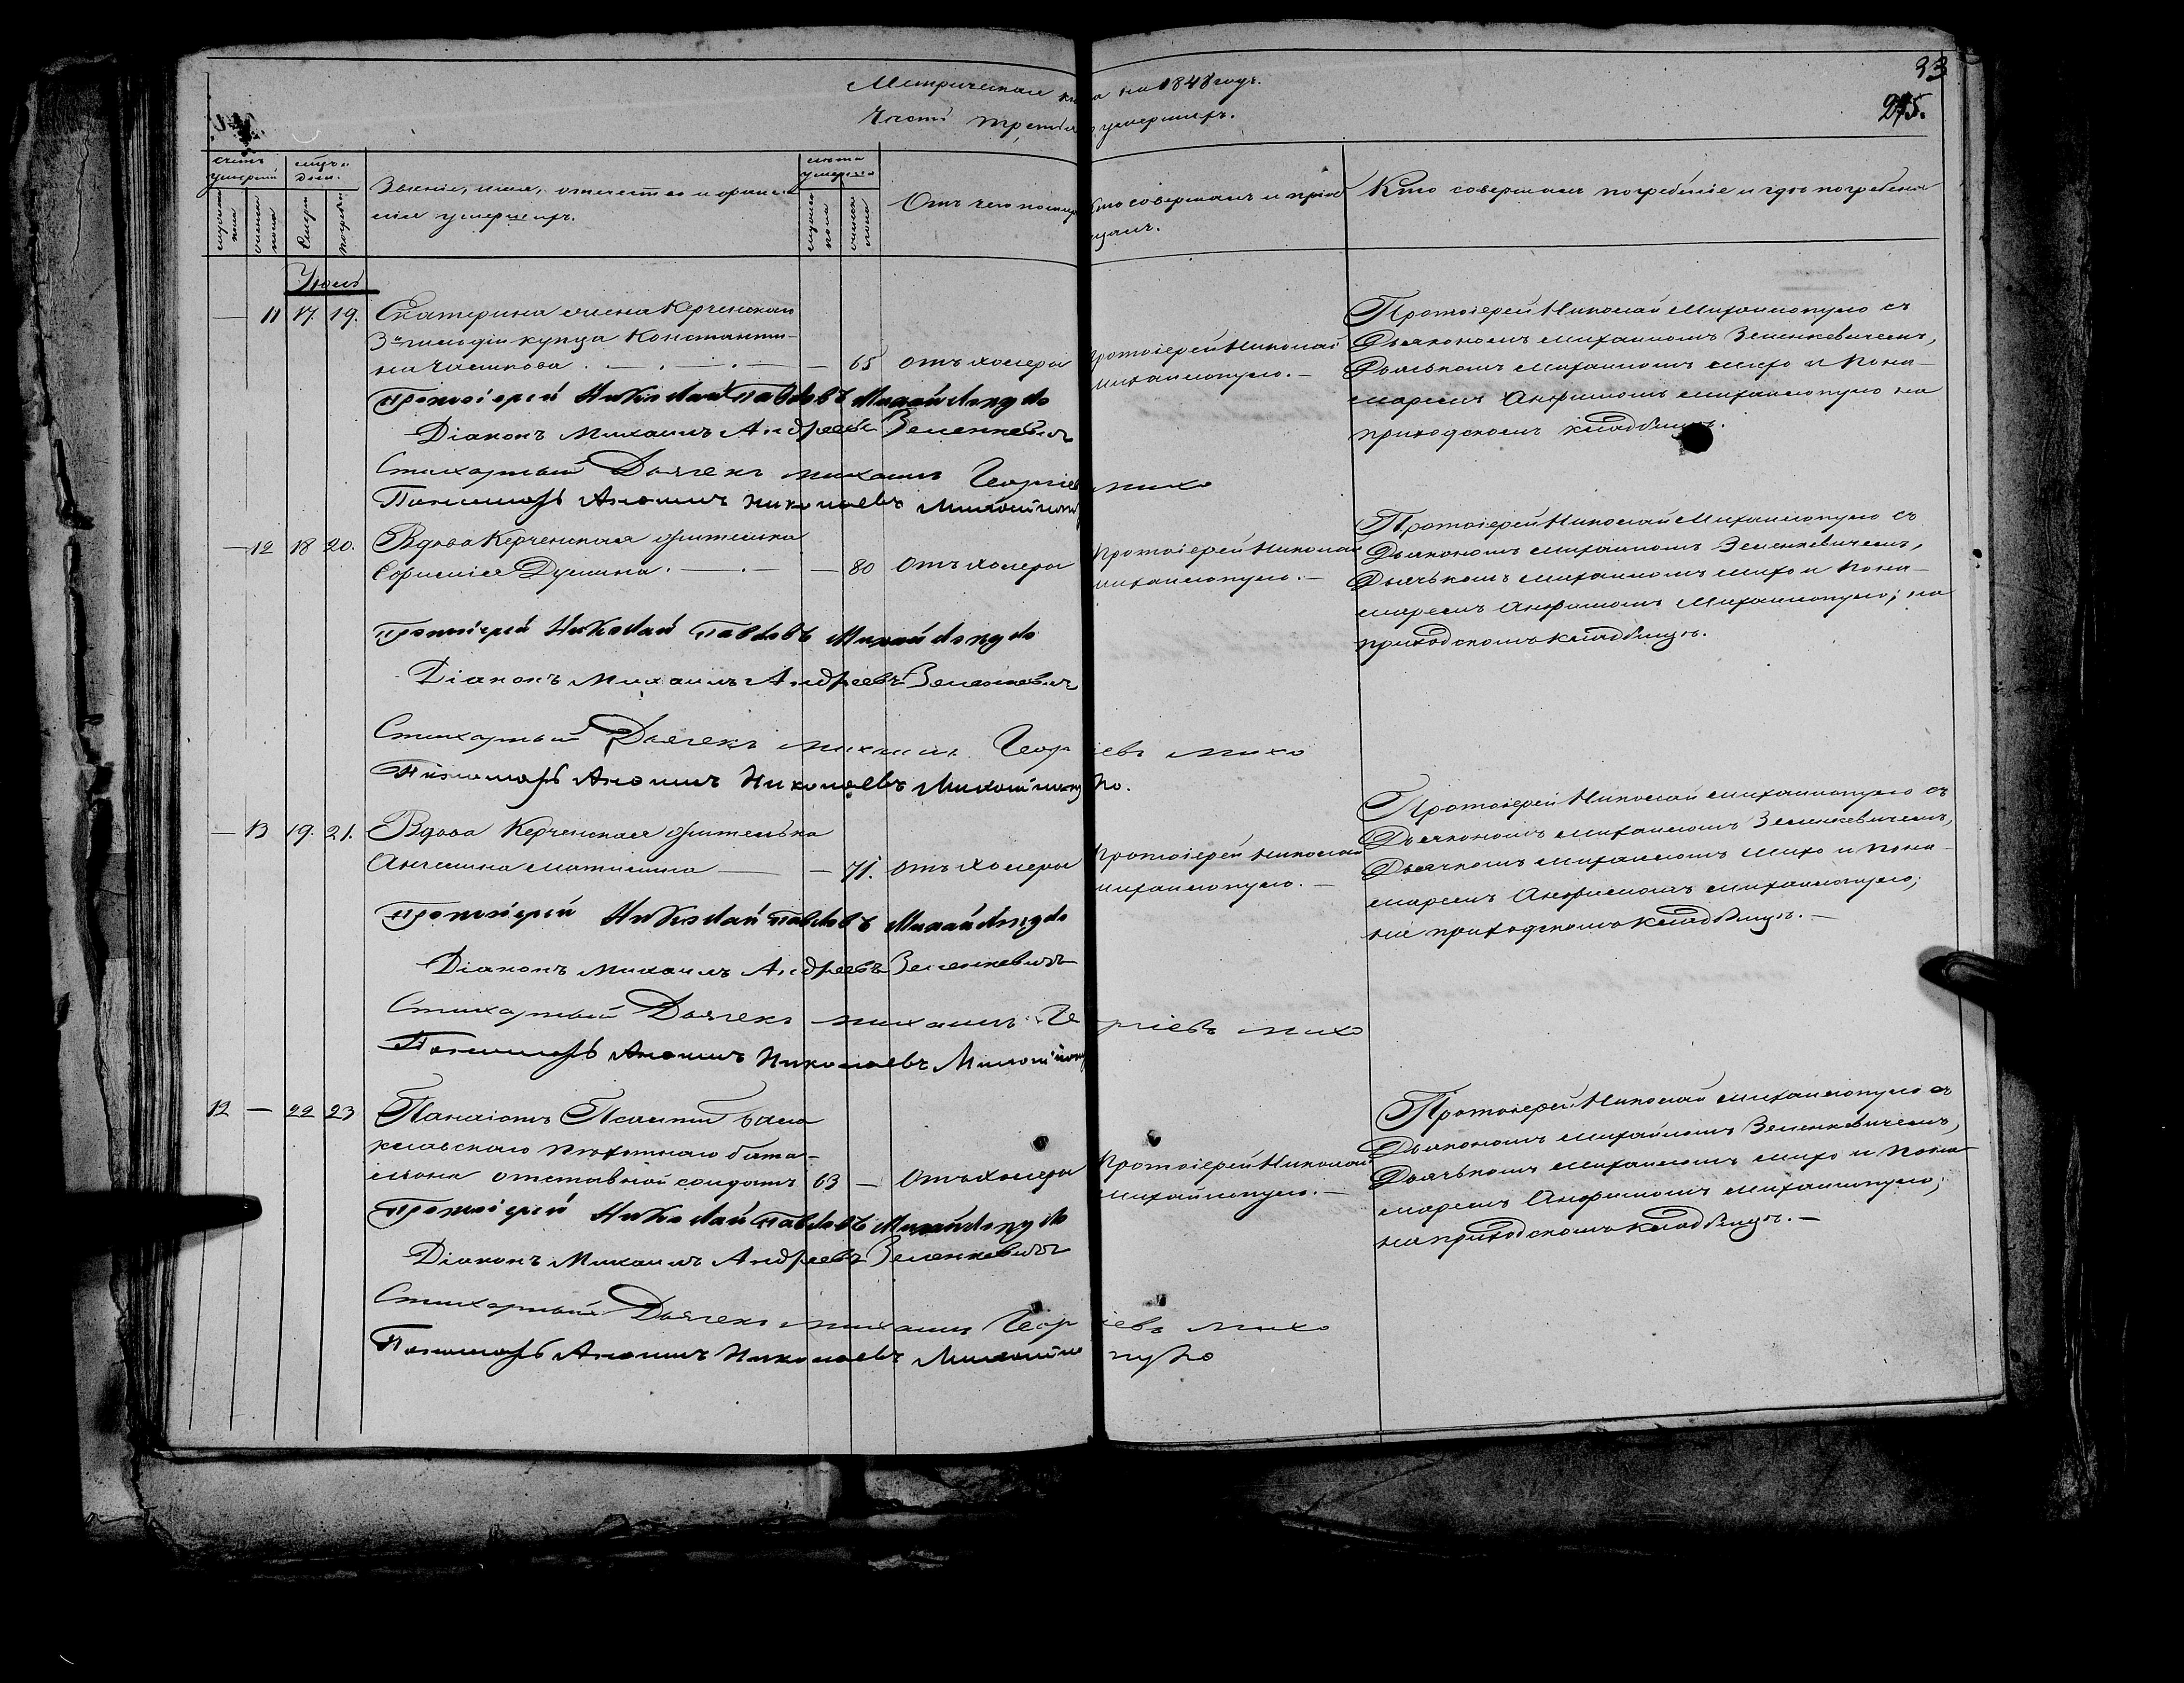 Метрическая кн а на 1848 годъ.
33
275.
Часть третія умершихъ.
счетъ умершихъ
мужеска пола
женска пола
мѣсяцъ и день
Смерти
погребен
Званіе, имя, отчество и фами-
лія умершихъ.
лѣта умершаго
мужеска пола
женска пола
Отъ чего померъ
Кто совершалъ погребеніе и гдѣ погребены
Іюль
— 11 17. 19. Екатерина жена Керченскаго
3й гильдіи купца Константи-
на — 65 отъ холеры
Протоіерей Николай
Михайлопуло. —
Протоіерей Николай Михайлопуло съ
Дьякономъ Михаиломъ Зеленкевичемъ,
Дьячькомъ Михаиломъ Михо и Поно-
маремъ Анфимомъ Михайлопуло на
приходскомъ кладбищѣ.
Протоіерей Николай Павловъ Михайлопуло
Діаконъ Михаилъ Андреевъ Зеленкевичъ
Стихарный Дьячекъ Михаилъ Георгіевъ Михо
Пономарь Анфимъ Николаевъ Михайлопу
— 12 18 20. Вдова Керченская жителька
— 80 отъ холеры
Протоіерей Николай
Михайлопуло. —
Протоіерей Николай Михайлопуло съ
Дьякономъ Михаиломъ Зеленкевичемъ,
Дьячькомъ Михаиломъ Михо и Поно-
маремъ Анфимомъ Михайлопуло; на
приходскомъ кладбищѣ.
Протоіерей Николай Павловъ Михайлопуло
Діаконъ Михаилъ Андреевъ Зеленкевичъ
Стихарный Дьячекъ Михаилъ Георгіевъ Михо
Пономарь Анфимъ Николаевъ Михайлопуло.
— 13 19. 21. Вдова Керченская жителька
— 71. отъ холеры
Протоіерей Николай
Михайлопуло. —
Протоіерей Николай Михайлопуло съ
Дьякономъ Михаиломъ Зеленкевичемъ,
Дьячкомъ Михаиломъ Михо и Поно-
маремъ Анфимомъ Михайлопуло;
на приходскомъ кладбищѣ. —
Протоіерей Николай Павловъ Михайлопуло
Діаконъ Михаилъ Андреевъ Зеленкевичъ
Стихарный Дьячекъ Михаилъ Георгіевъ Михо
Пономарь Анфимъ Николаевъ Михайлопу
12 — 22 23 Панаіотъ Псалти Бала-
клавскаго пѣхотнаго бата-
ліона отставной солдатъ 63 — Отъ холеры
Протоіерей Николай
Михайлопуло. —
Протоіерей Николай Михайлопуло съ
Дьякономъ Михаиломъ Зеленкевичемъ,
Дьячькомъ Михаиломъ Михо и Поно-
маремъ Анфимомъ Михайлопуло;
на приходскомъ кладбищѣ. —
Протоіерей Николай Павловъ Михайлопуло
Діаконъ Михаилъ Андреевъ Зеленкевичъ
Стихарный Дьячекъ Михаилъ Георгіевъ Михо
Пономарь Анфимъ Николаевъ Михайлопуло